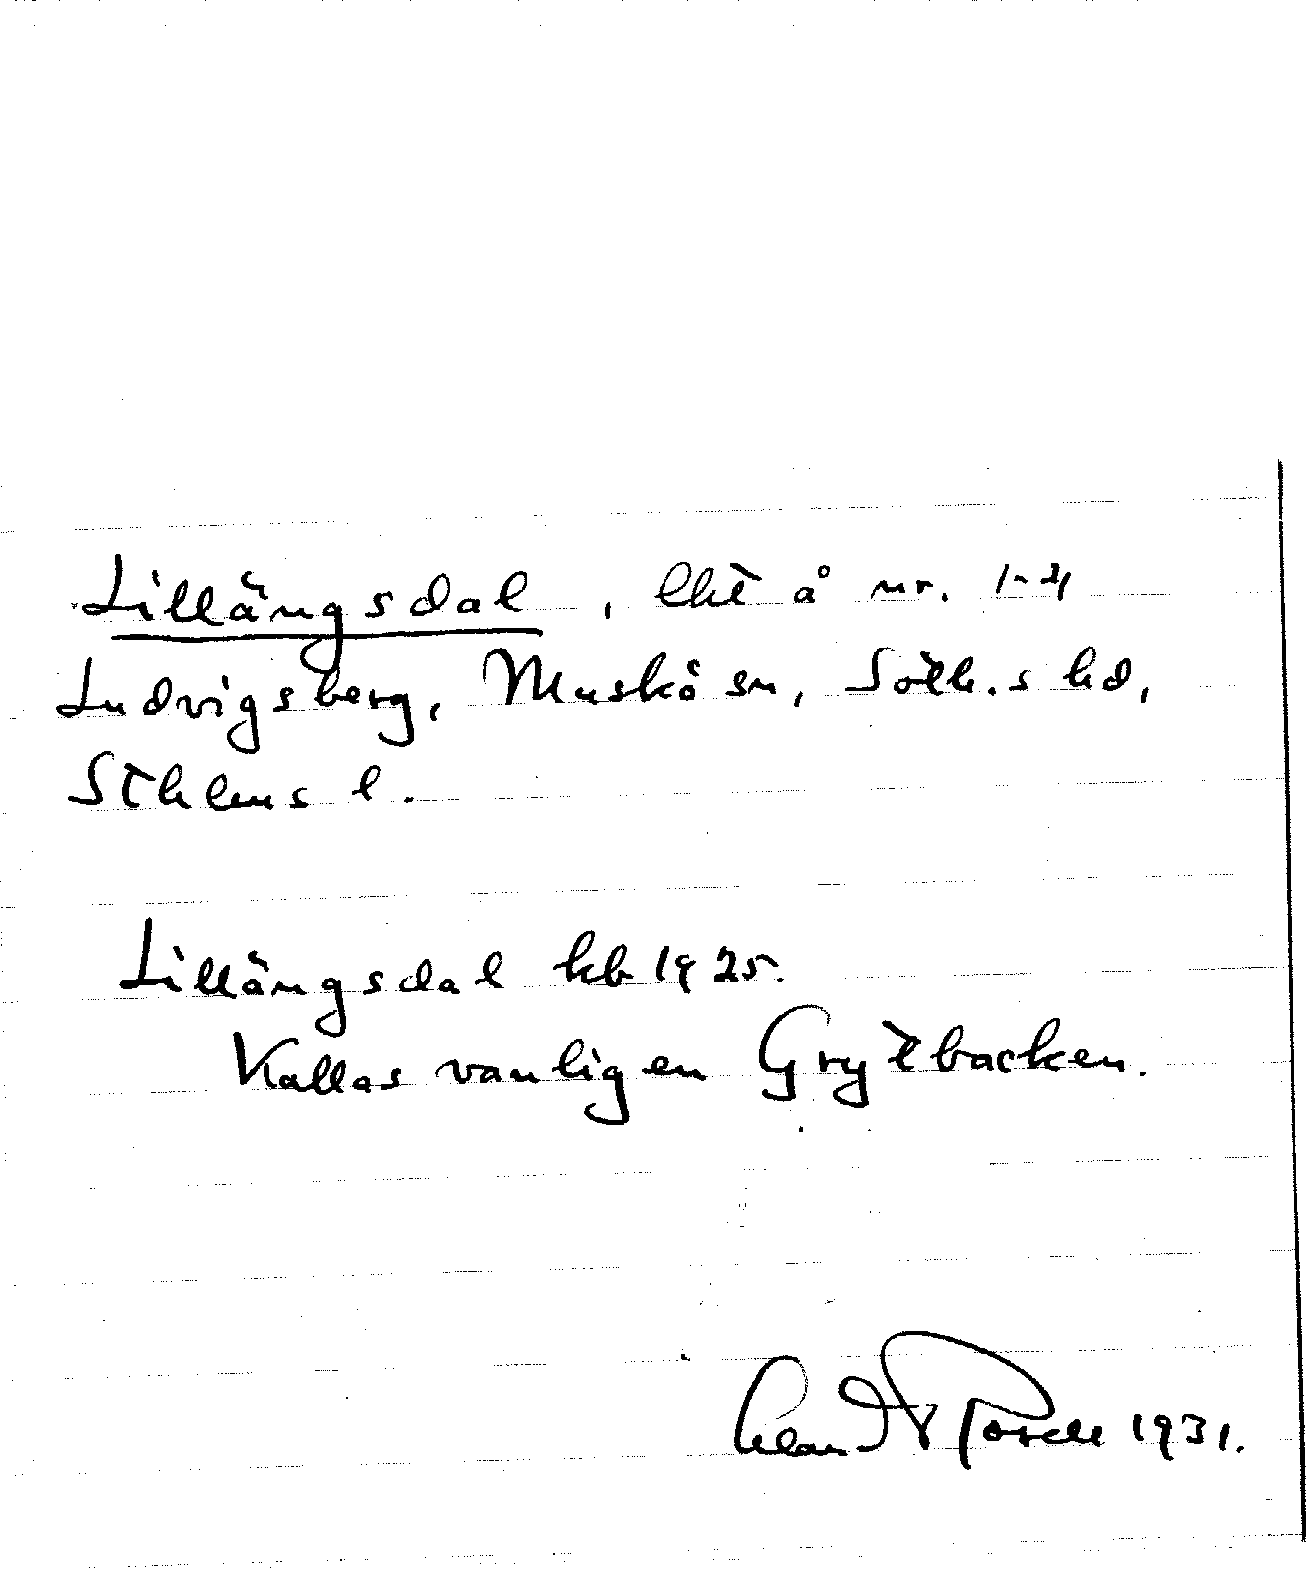 Lillängsdal, lht å nr. 1-4
Ludvigsberg, Muskö sn, Soth.s hd,
Sthlms l.
Lillängsdal kb 1925.
Kallas vanligen Grytbacken.
1931.